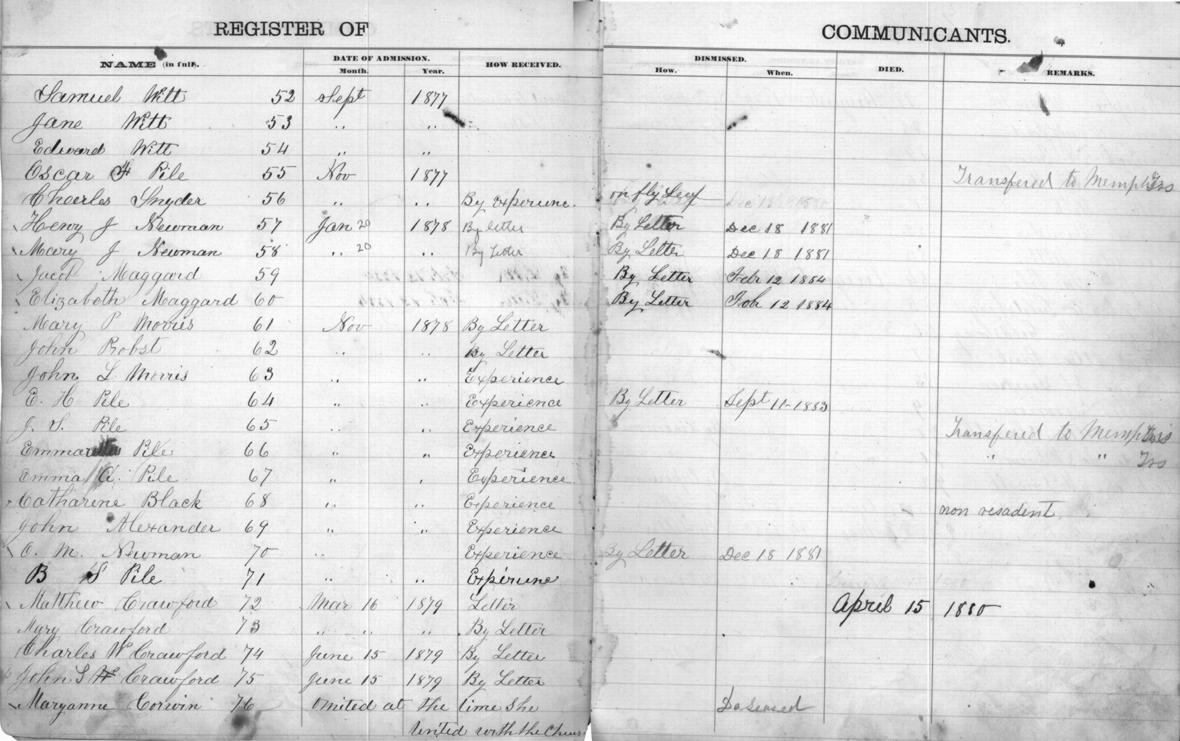 REGISTER OF COMMUNICANTS.
NAME (in full). DATE OF ADMISSION. HOW RECEIVED. DISMISSED. DIED. REMARKS.
Month. Year. How. When.
Samuel Witt 52 Sept 1877
Jane Witt 53 " "
Edward Witt 54 " "
Oscar F Pile 55 Nov 1877 Transfered to Memphis
Charles Snyder 56 " " By Experiene. on fly Leaf
Henry J Newman 57 Jan 20 1878 By letter By Letter Dec 18 1881
Mary J Newman 58 " 20 " By Letter By Letter Dec 18 1881
Jacob Maggard 59 By Letter Feb 12 1884
Elizabeth Maggard 60 By Letter Feb 12 1884
Mary P Morris 61 Nov 1878 By Letter
John Probst 62 " " By Letter
John L Morris 63 " " Experience
E. H Pile 64 " " Experience By Letter Sept 11-1883
J. S. Pile 65 " " Experience Transfered to Memphis
Emma Pile 66 " " Experience " "
Emma A. Pile 67 " " Experience
Catharine Black 68 " " Experience non resadent
John Alexander 69 " " Experience
O. M. Newman 70 " Experience By Letter Dec 18 1881
B S Pile 71 " " Experiene
Matthew Crawford 72 Mar 16 1879 Letter April 15 1880
Mary Crawford 73 " " " By Letter
Charles W Crawford 74 June 15 1879 By Letter
John S Crawford 75 June 15 1879 By Letter
Maryanne Corwin 76 Omited at the time she Deseased
United with the